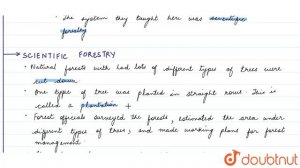 • The system they taught here was scientific
forestry
→ SCIENTIFIC FORESTRY
• Natural forests with had lots of different types of trees were
cut down
• One type of tree was planted in straight rows. This is
called a plantation +
• Forest officials surveyed the forests, estimated the area under
different types of trees, and made working plans for forest
management.
doubtnut